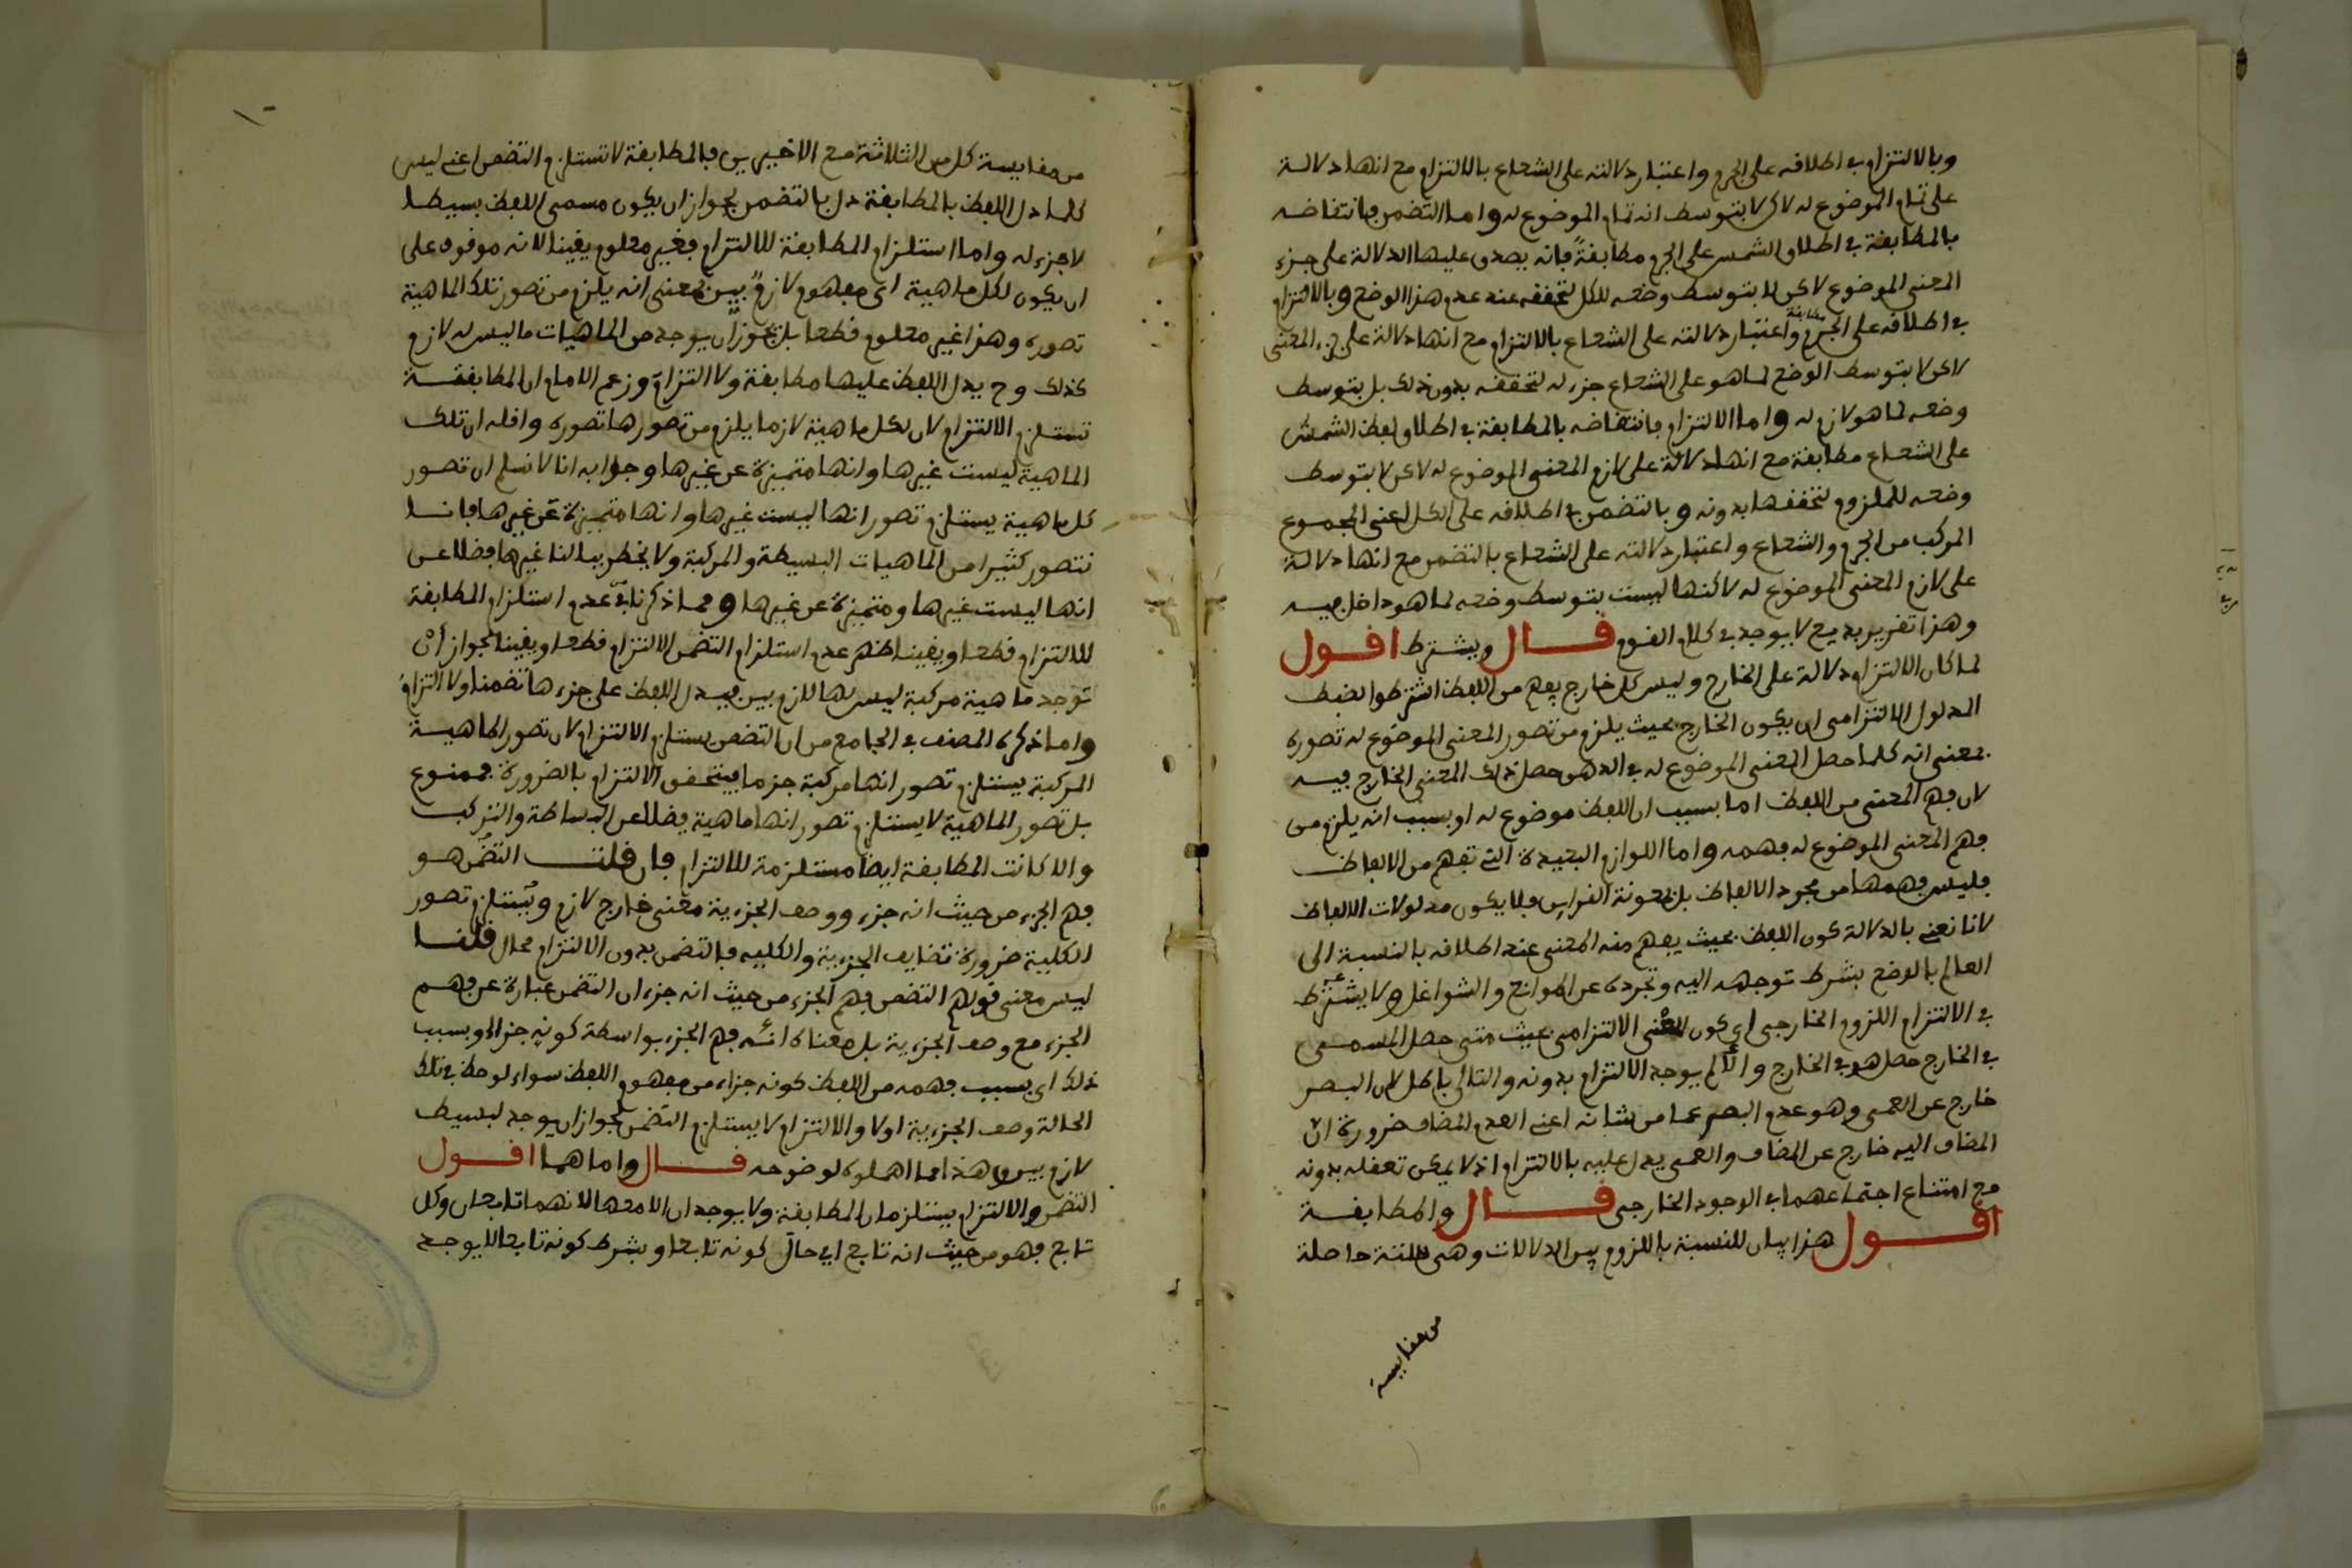 وبالالتزام في اطلاقه على الجرم واعتبار دلالته على الشعاع بالالتزام مع انها دلالة
على تمام الموضوع له لاكن لا بتوسط انه تمام الموضوع له واما التضمن فانتقاضه
بالمطابقة في اطلاق الشمس على الجرم مطابقةً فانه يصدق عليها الدلالة على جزء
المعنى الموضوع لاكن لا بتوسط وضعه للكل لتحققه عند عدم هذا الوضع وبالالتزام
في اطلاقه على الجرم مطابقة واعتبار دلالته على الشعاع بالالتزام مع انها دلالة على جزء المعنى
لاكن لا بتوسط الوضع لما هو على الشعاع جزء له لتحققه بدون ذلك بل بتوسط
وضعه لما هو لازم له واما الالتزام فانتقاضه بالمطابقة في اطلاق لفظ الشمس
على الشعاع مطابقة مع انها دلالة على لازم المعنى الموضوع له لاكن لا بتوسط
وضعه للملزوم لتحققها بدونه وبالتضمن في اطلاقه على الكل اعنى المجموع
المركب من الجرم والشعاع واعتبار دلالته على الشعاع بالتضمن مع انها دلالة
على لازم المعنى الموضوع له لاكنها ليست بتوسط وضعه لما هو داخل فيه
وهذا تقرير بديع لا يوجد في كلام القوم قال ويشترط اقول
لما كان الالتزام دلالة على الخارج وليس كل خارج يفهم من اللفظ اشترطوا لضبط
المدلول الالتزامى ان يكون الخارج بحيث يلزم من تصور المعنى الموضوع له تصوره
بمعنى انه كلما حصل المعنى الموضوع له في الذهن حصل ذلك المعنى الخارج فيه
لان فهم المعنى من اللفظ اما بسبب ان اللفظ موضوع له او بسبب انه يلزم من
فهم المعنى الموضوع له فهمه واما اللوازم البعيدة التى تفهم من الالفاظ
فليس فهمها من مجرد الالفاظ بل بمعونة القراين فلا يكون مدلولات الالفاظ
لانا نعنى بالدلالة كون اللفظ بحيث يفهم منه المعنى عند اطلاقه بالنسبة الى
العالم بالوضع بشرط توجهه اليه وتجرده عن الموانع والشواغل ولا يشترط
في الالتزام اللزوم الخارجى اى كون المعنى الالتزامى بحيث متى حصل المسمى
في الخارج حصل هو في الخارج والا لم يوجد الالتزام بدونه والتالى باطل لان البصر
خارج عن العمى وهو عدم البصر عما من شانه اعنى العدم المضاف ضرورة انّ
المضاف اليه خارج عن المضاف والعمى يدل عليه بالالتزام اذ لا يمكن تعقله بدونه
مع امتناع اجتماعهما في الوجود الخارجى قال والمطابقة
اقول هذا بيان للنسبة باللزوم بين الدلالات وهى ستة حاصلة
من مقايسة
من مقايسة كل من الثلاثة مع الاخيرين فالمطابقة لا تستلزم التضمن اعنى ليس
كلما دل اللفظ بالمطابقة دل بالتضمن لجواز ان يكون مسمى اللفظ بسيطا
لا جزء له واما استلزام المطابقة للالتزام فغير معلوم يقينا لانه موقوف على
ان يكون لكل ماهية اى مفهوم لازمٌ بيّن بمعنى انه يلزم من تصور تلك الماهية
تصوره وهذا غير معلوم قطعا بل يجوز ان يوجد من الماهيات ما ليس له لازم
كذلك وح يدل اللفظ عليها مطابقة ولا التزام وزعم الامام ان المطابقة
تستلزم الالتزام لان لكل ماهية لازما يلزم من تصورها تصوره واقله ان تلك
الماهية ليست غيرها وانها متميزة عن غيرها وجوابه انا لا نسلم ان تصور
كل ماهية يستلزم تصور انها ليست غيرها وانها متميزة عن غيرها فانا
نتصور كثيرا من الماهيات البسيطة والمركبة ولا يخطر ببالنا غيرها فضلا عن
انها ليست غيرها ومتميزة عن غيرها ومما ذكرنا في عدم استلزام المطابقة
للالتزام قطعا ويقينا ظهر عدم استلزام التضمن الالتزام قطعا ويقينا لجواز أنْ
توجد ماهية مركبة ليس لها لازم بين فيدل اللفظ على جزءها تضمنا ولا التزام
واما ذكره المصنف في الجامع من ان التضمن يستلزم الالتزام لان تصور الماهية
المركبة يستلزم تصور انها مركبة جزما فيتحقق الالتزام بالضرورة فممنوع
بل تصور الماهية لا يستلزم تصور انها ماهية فضلا عن البساطة والتركيب
والا كانت المطابقة ايضا مستلزمة للالتزام فان قلت التضمن هو
فهم الجزء من حيث انه جزء ووصف الجزءية معنى خارج لازم ويستلزم تصور
الكلية ضرورة تضايف الجزءية والكليه فالتضمن بدون الالتزام محال قلنا
ليس معنى قولهم التضمن فهم الجزء من حيث انه جزء ان التضمن عبارة عن فهم
الجزء مع وصف الجزءية بل معناه انه فهم الجزء بواسطة كونه جزءا وبسبب
ذلك اى بسبب فهمه من اللفظ كونه جزءا من مفهوم اللفظ سواء لوحظ في تلك
الحالة وصف الجزءية او لا والالتزام لا يستلزم التضمن لجواز ان يوجد لبسيط
لازم بين وهذا مما اهملوه لوضوحه قال واما هما اقول
التضمن والالتزام يستلزمان المطابقة ولا يوجدان الا معها لانهما تابعان وكل
تابع فهو من حيث انه تابع اى حال كونه تابعا وبشرط كونه تابعا لا يوجد